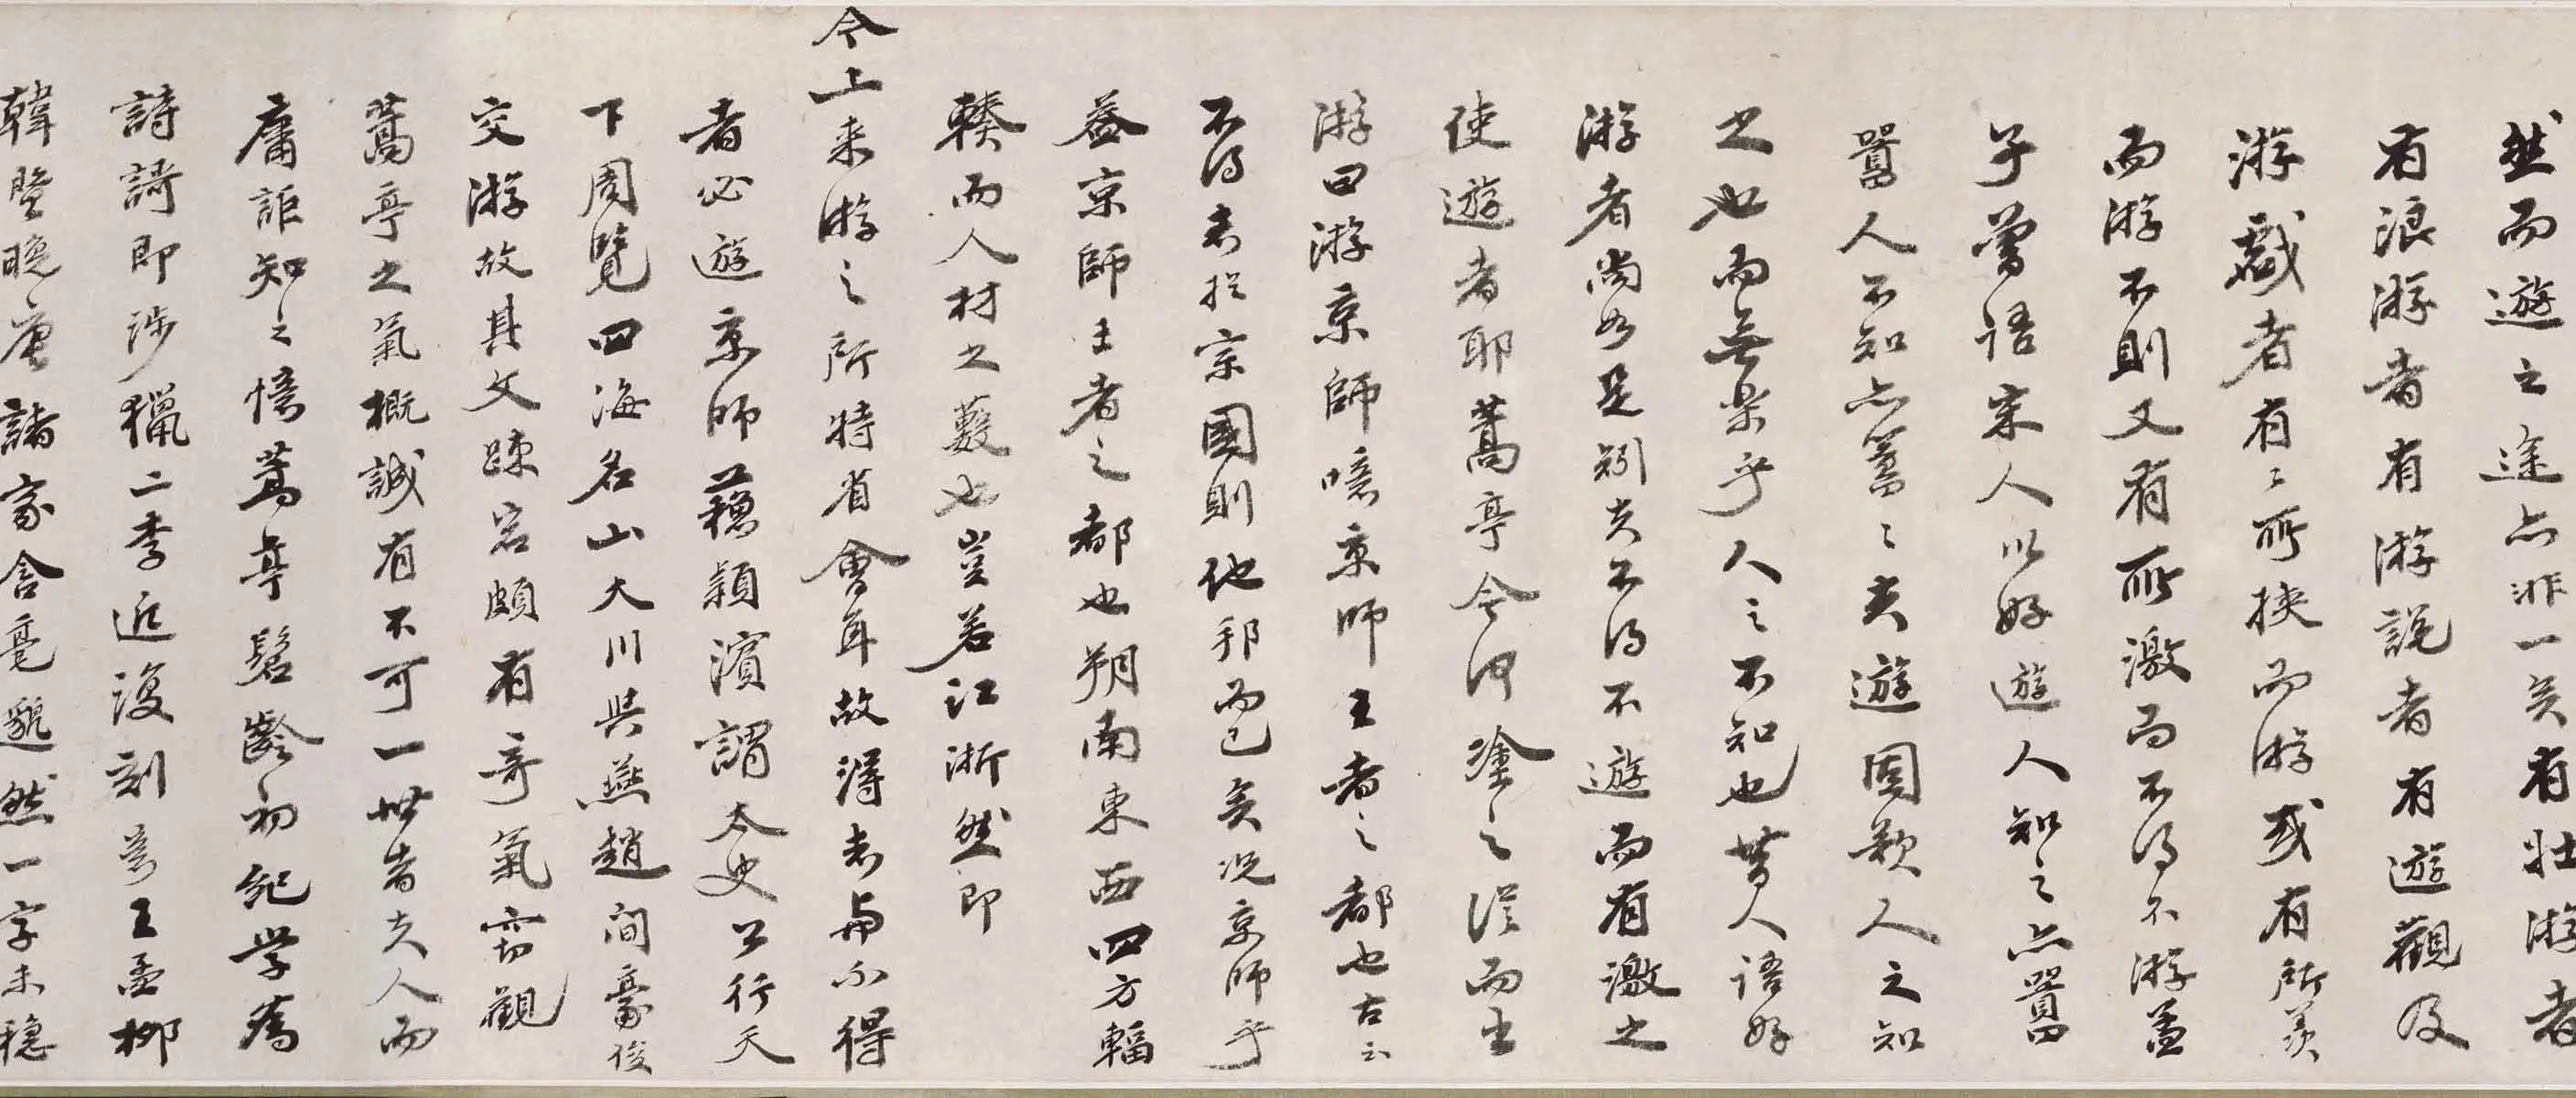 然而遊之途亦非一矣有壯游者
有浪游者有游說者有遊觀及
游戲者有〻所挾而游或有所羨
而游不則又有所激而不得不游蓋
子嘗語宋人以好遊人知之亦囂
囂人不知亦囂〻夫遊固歎人之知
之也而無樂乎人之不知也昔人語好
游者尚如是矧夫不得不遊而有激之
使遊者耶蒿亭今何塗之從而出
游曰游京師噫京師王者之都也古云
不得志於宗國則他邦而已矣況京師乎
蓋京師王者之都也朔南東西四方輻
輳而人材之藪也豈若江浙然即
今上来游之所特省會耳故得志與不得
者必遊京師蘇潁濱謂太史公行天
下周覽四海名山大川與燕趙間豪俊
交游故其文疎宕頗有奇氣竊觀
蒿亭之氣概誠有不可一世者夫人而
庸詎知之憶蒿亭髫齡初紀学為
詩詞即涉獵二李近復刻意王孟柳
韓暨晚唐諸家含毫邈然一字未穩